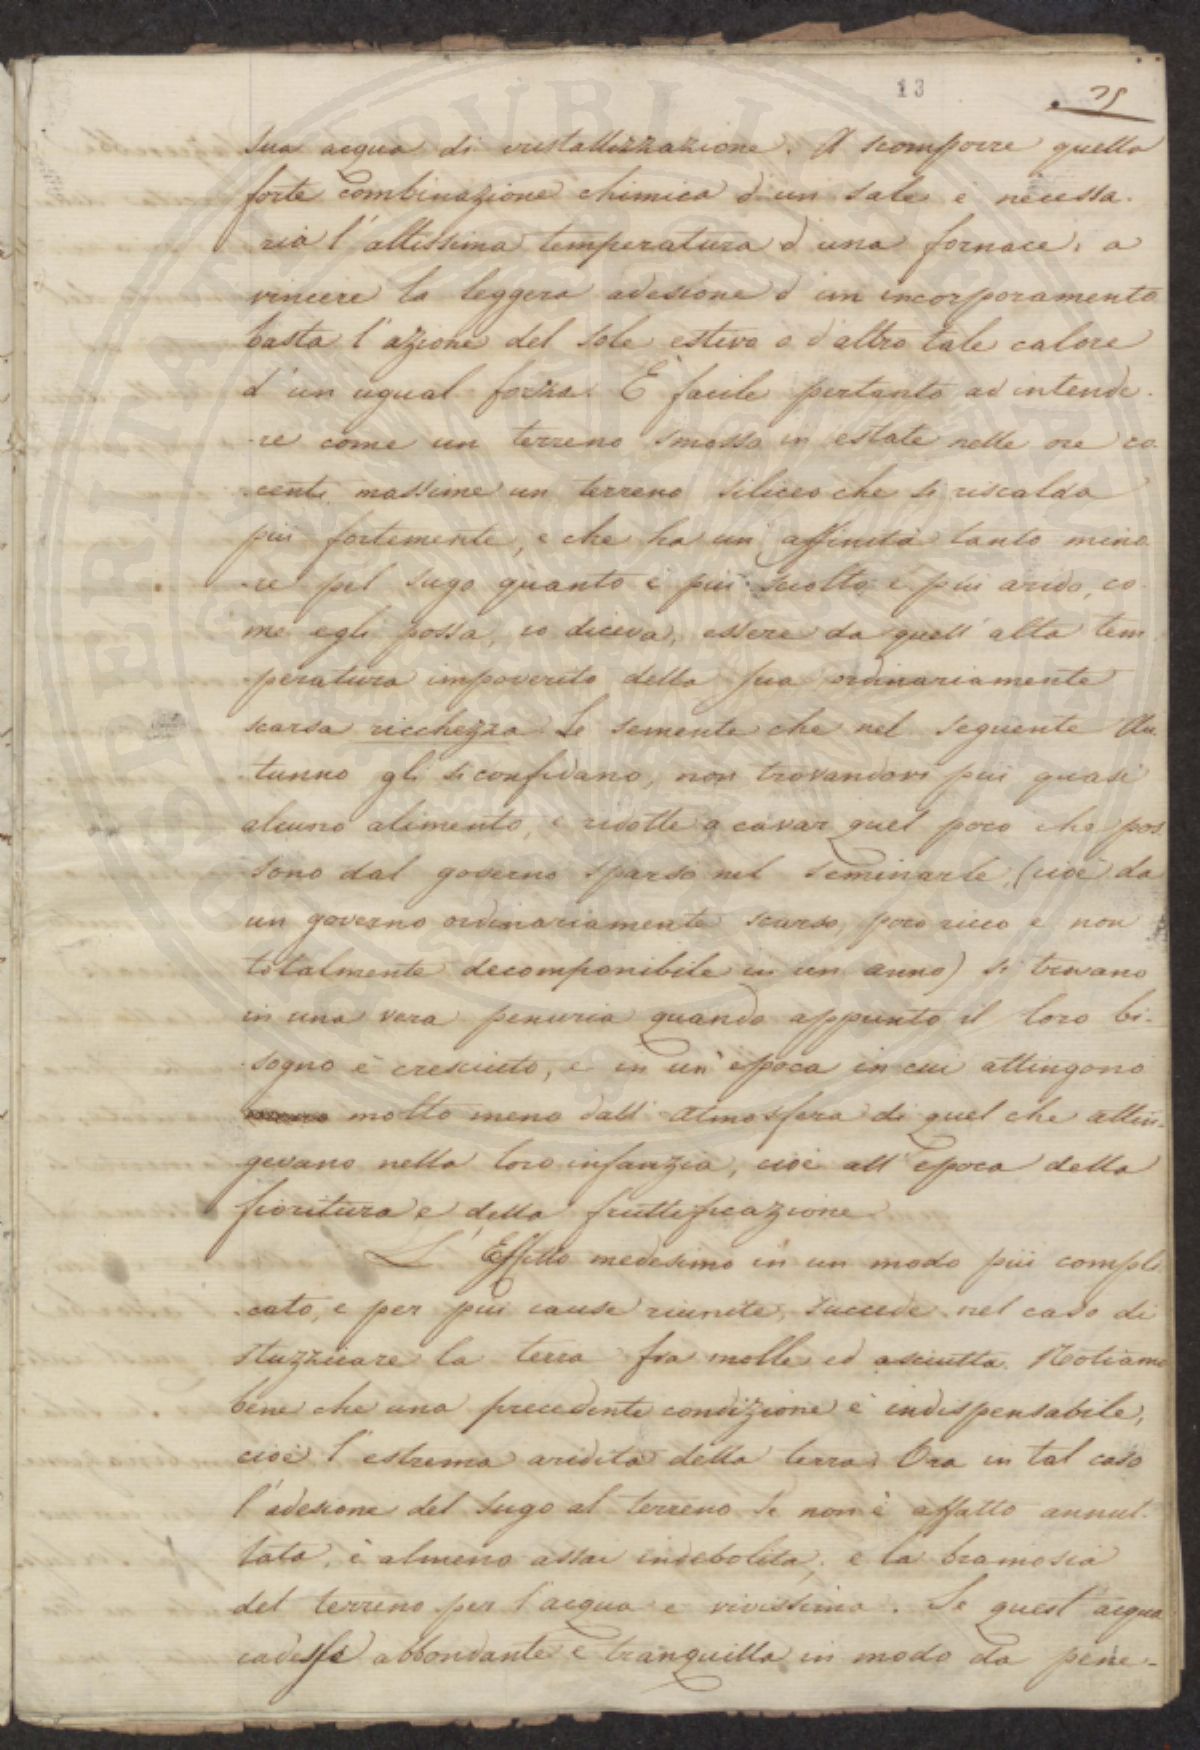 13
25
sua acqua di cristallizzazione. A scomporre quella
forte combinazione chimica d'un sale è necessa-
ria l'altissima temperatura d'una fornace, a
vincere la leggera adesione d'un incorporamento
basta l'azione del sole estivo o d'altro tale calore
d'un ugual forza. È facile pertanto ad intende-
re come un terreno smosso in estate nelle ore co-
centi massime un terreno siliceo che si riscalda
più fortemente, e che ha un affinità tanto mino-
re pel sugo quanto è più sciolto e più arido, co-
me egli possa, io diceva, essere da quell'alta tem-
peratura impoverito della sua ordinariamente
scarsa ricchezza. Le semente che nel seguente Au-
tunno gli si confidano, non trovandovi più quasi
alcuno alimento, e ridotte a cavar quel poco che pos-
sono dal governo sparso nel seminarle, (cioè da
un governo ordinariamente scarso, poco ricco e non
totalmente decomponibile in un anno) si trovano
in una vera penuria quando appunto il loro bi-
sogno è cresciuto, e in un'epoca in cui attingono
molto meno dall'atmosfera di quel che attin-
gevano nella loro infanzia, cioè all'epoca della
fioritura e della fruttificazione.
L'Effetto medesimo in un modo più compli-
cato, e per più cause riunite, succede nel caso di
stuzzicare la terra fra molle ed asciutta. Notiamo
bene che una precedente condizione è indispensabile,
cioè l'estrema aridità della terra. Ora in tal caso
l'adesione del sugo al terreno se non è affatto annul-
lata, è almeno assai indebolita, e la bramosia
del terreno per l'acqua è vivissima. Se quest'acqua
cadesse abbondante e tranquilla in modo da pene-